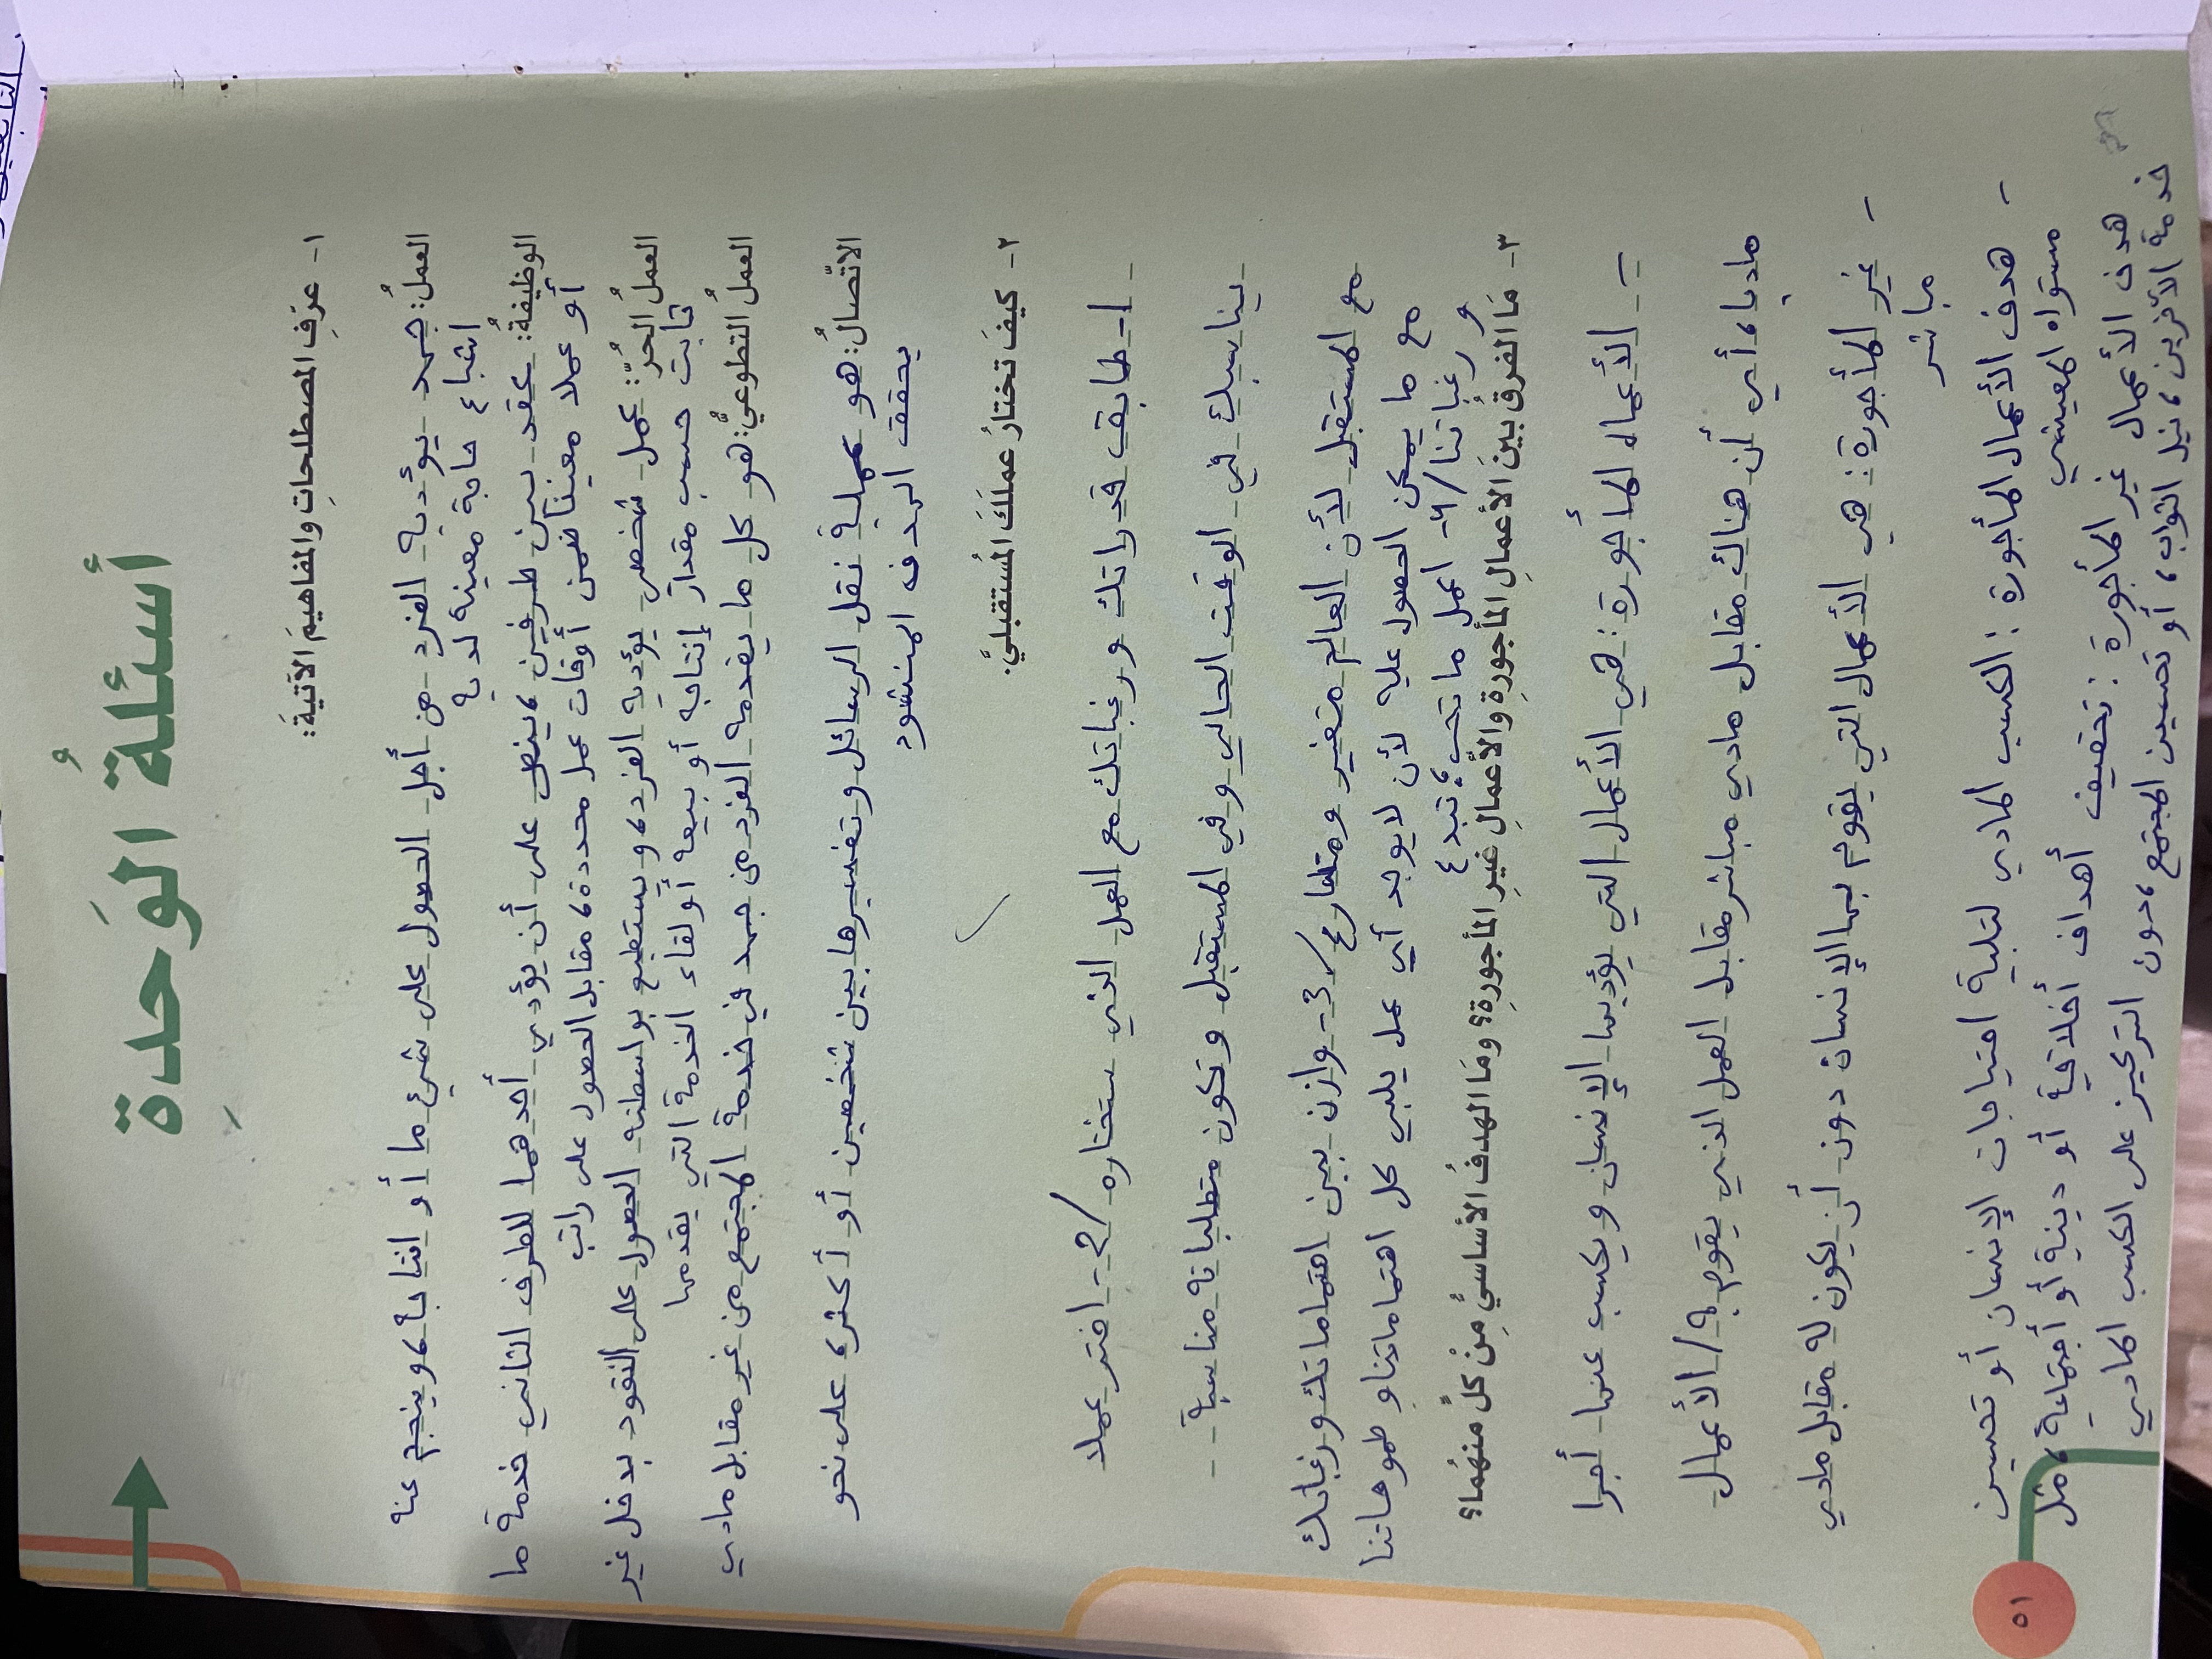 أسئلة الوَحدة
١- عرّفِ المصطلحاتِ والمفاهيمَ الآتيةَ:
العملُ: جهد يؤديه الفرد من أجل الحصول على شيء ما أو انتاجه، وينجم عنه
اشباع حاجة معينة لديه
الوظيفةُ: عقد بين طرفين، ينص على أن يؤدي أحدهما للطرف الثاني خدمة ما
أو عملا معينا ضمن أوقات عمل محددة، مقابل الحصول على راتب
العملُ الحُرّ: عمل شخصي يؤديه الفرد، ويستطيع بواسطته الحصول على النقود بدخل غير
ثابت حسب مقدار إنتاجه أو بيعه أو لقاء الخدمة التي يقدمها
العملُ التطوعيُّ: هو كل ما يقدمه الفرد من جهد في خدمة المجتمع من غير مقابل مادي
الاتّصالُ: هو عملية نقل الرسائل وتفسيرها بين شخصين أو أكثر، على نحو
يحقق الهدف المنشود
٢- كيفَ تختارُ عملَكَ المُستقبليَّ.
1- طابق قدراتك ورغباتك مع العمل الذي ستختاره / 2- اختر عملا
يناسبك في الوقت الحالي وفي المستقبل وتكون متطلباته مناسبة
مع المستقبل لأن العالم متغير ومتسارع / 3- وازن بين اهتماماتك ورغباتك
مع ما يمكن الحصول عليه لأن لا يوجد أي عمل يلبي كل اهتماماتنا وطموحاتنا
ورغباتنا / ٤- اعمل ما تحب، تبدع
٣- مَا الفرقُ بينَ الأعمالِ المأجورةِ والأعمالِ غيرِ المأجورةِ؟ ومَا الهدفُ الأساسيُّ مِنْ كلٍّ منهُما؟
- الأعمال المأجورة: هي الأعمال التي يؤديها الإنسان ويكسب عنها أجرا
ماديا، أي أن هناك مقابل مادي مباشر مقابل العمل الذي يقوم به / الأعمال
- غير المأجورة: هي الأعمال التي يقوم بها الإنسان دون أن يكون له مقابل مادي
مباشر
- هدف الأعمال المأجورة: الكسب المادي لتلبية احتياجات الإنسان أو تحسين
مستواه المعيشي
هدف الأعمال غير المأجورة: تحقيق أهداف أخلاقية أو دينية أو أجتماعية، مثل
خدمة الآخرين، نيل الثواب، أو تحسين المجتمع، دون التركيز على الكسب المادي
٥١